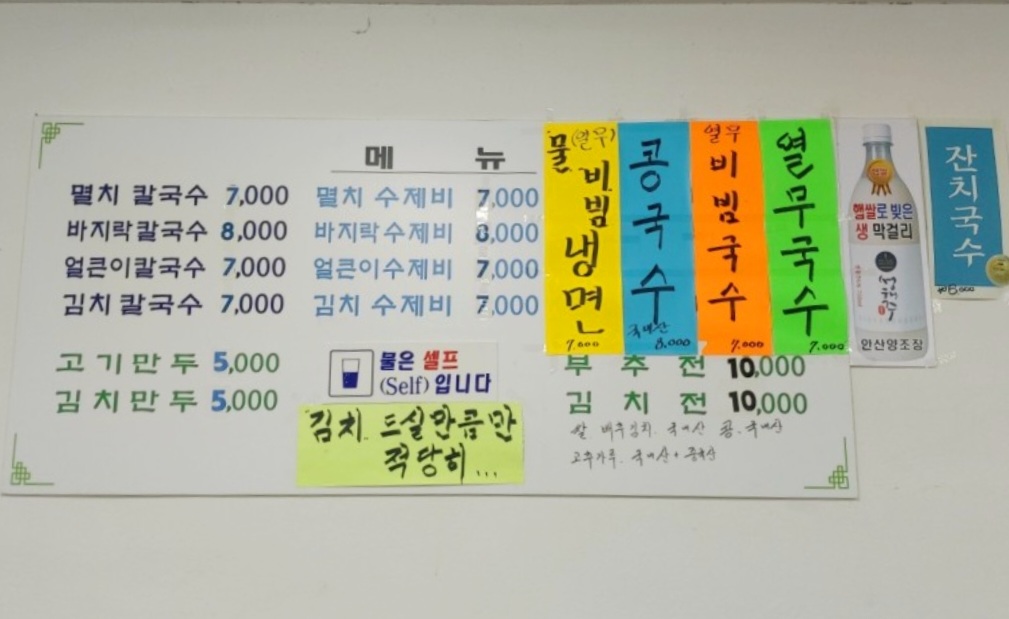 메 뉴
멸치 칼국수 7,000
바지락칼국수 8,000
얼큰이칼국수 7,000
김치 칼국수 7,000
멸치 수제비 7,000
바지락수제비 8,000
얼큰이수제비 7,000
김치 수제비 7,000
고기만두 5,000
김치만두 5,000
물은 셀프
(Self) 입니다
김치 드실만큼만
적당히...
부추전 10,000
김치전 10,000
쌀 배추김치. 국내산 콩. 국내산
고추가루. 국내산 + 중국산
(열무)
물.비빔냉면
7000
콩국수
국내산
8,000
열무
비빔국수
7,000
열무국수
7,000
햅쌀로 빚은
생 막걸리
안산양조장
잔치국수